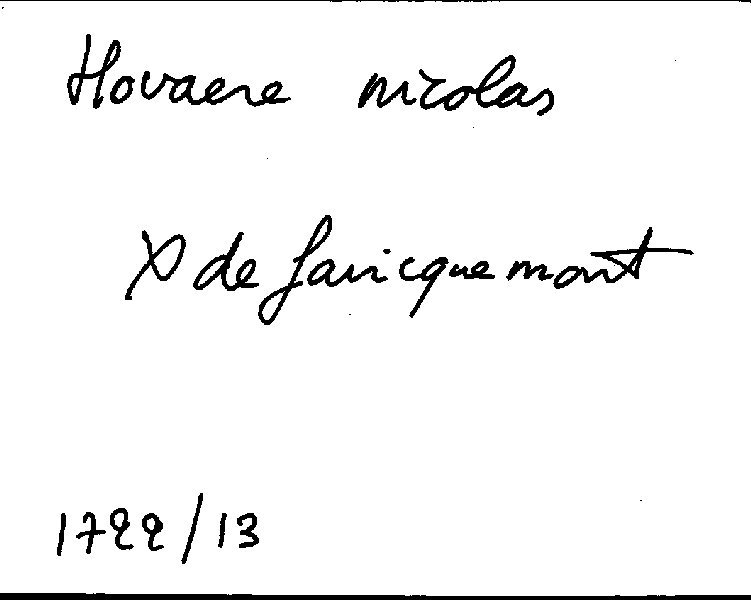 Hovaere nicolas
X de fauicquemont
1722/13